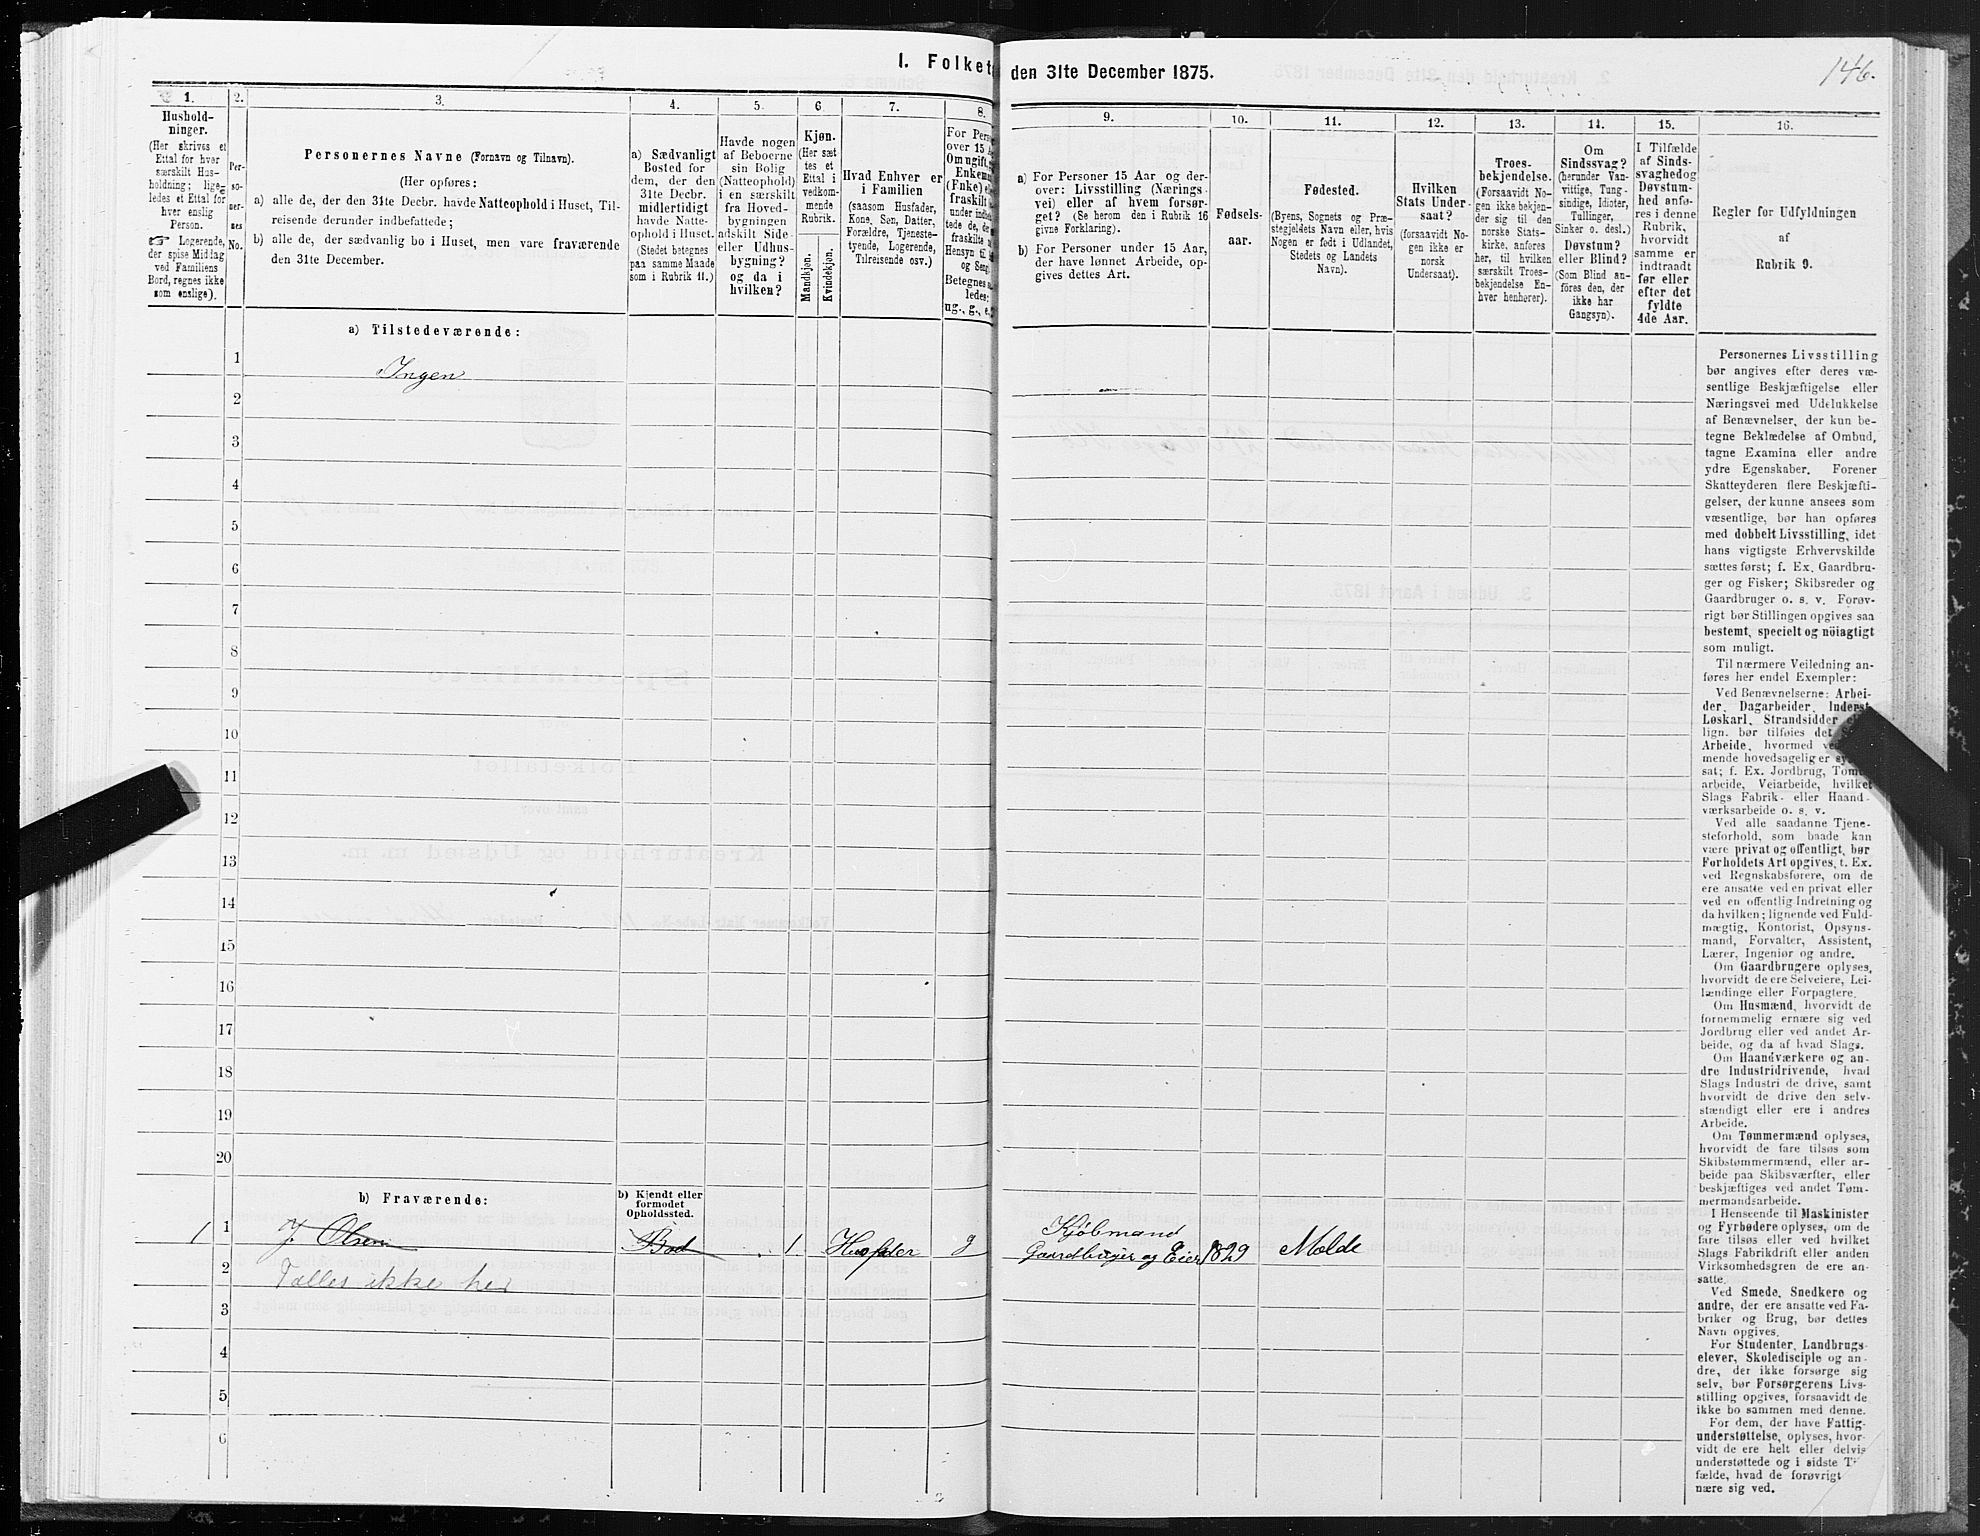 1. Folket
den 31te December 1875.
146.
1.
Hushold-
ninger.
(Her skrives et
Ettal for hver
særskilt Hus-
holdning; lige-
ledes et Ettal for
hver enslig
Person.
☞ Logerende,
der spise Middag
ved Familiens
Bord, regnes ikke
som enslige).
2.
Per-
so-
ner-
nes
No.
3.
Personernes Navne (Fornavn og Tilnavn).
(Her opføres:
a) alle de, der den 31te Decbr. havde Natteophold i Huset, Til-
reisende derunder indbefattede;
b) alle de, der sædvanlig bo i Huset, men vare fraværende
den 31te December.
4.
a) Sædvanligt
Bosted for
dem, der den
31te Decbr.
midlertidigt
havde Natte-
ophold i Huset.
(Stedet betegnes
paa samme Maade
som i Rubrik 11.)
5.
Havde nogen
af Beboerne
sin Bolig
(Natteophold)
i en særskilt
fra Hoved-
bygningen
adskilt Side-
eller Udhus-
bygning?
og da i
hvilken?
6
Kjøn.
(Her sæt
tes et
Ettal i
vedkom-
mende
Rubrik.
Mandkjøn.
Kvindekjøn.
7.
Hvad Enhver er
i Familien
(saasom Husfader,
Kone, Søn, Datter,
Forældre, Tjeneste-
tyende, Logerende,
Tilreisende osv.)
8.
For Pers
over 15 A
Om ugift,
Enkem
(Fnke) e
fraskilt
under indb
tede de, d
fraskilte
Hensyn til
og Seng.
Betegnes
ledes:
ug., g., e.
9.
a) For Personer 15 Aar og der-
over: Livsstilling (Nærings-
vei) eller af hvem forsør-
get? (Se herom den i Rubrik 16
givne Forklaring).
b) For Personer under 15 Aar,
der have lønnet Arbeide, op-
gives dettes Art.
10.
Fødsels-
aar.
11.
Fødested.
(Byens, Sognets og Præ-
stegjeldets Navn eller, hvis
Nogen er født i Udlandet,
Stedets og Landets
Navn).
12.
Hvilken
Stats Under-
saat?
(forsaavidt No-
gen ikke er
norsk
Undersaat).
13.
Troes-
bekjendelse.
(Forsaavidt No-
gen ikke bekjen-
der sig til den
norske Stats-
kirke, anføres
her, til hvilken
særskilt Troes-
bekjendelse En-
hver henhører).
14.
Om
Sindssvag?
(herunder Van-
vittige, Tung-
sindige, Idioter,
Tullinger,
Sinker o. desl.)
Døvstum?
eller Blind?
(Som Blind an-
føres den, der
ikke har
Gangsyn).
15.
I Tilfælde
af Sinds-
svaghed og
Døvstum-
hed anfø-
res i denne
Rubrik,
hvorvidt
samme er
indtraadt
før eller
efter det
fyldte
4de Aar.
16.
Regler for Udfyldningen
af
Rubrik 9.
a) Tilstedeværende:
1
Ingen
2
3
4
5
6
7
8
9
10
11
12
13
14
15
16
17
18
19
20
b) Fraværende:
b) Kjendt eller
formodet
Opholdssted.
1 1 J. Olsen Bod 1 Husfader g Kjøbmand
Gaardbruger og Eier 1829 Molde
2 Tælles ikke her
3
4
5
6
Personernes Livsstilling
bør angives efter deres væ-
sentlige Beskjæftigelse eller
Næringsvei med Udelukkelse
af Benævnelser, der kun be-
tegne Beklædelse af Ombud,
tagne Examina eller andre
ydre Egenskaber. Forener
Skatteyderen flere Beskjæfti-
gelser, der kunne ansees som
væsentlige, bør han opføres
med dobbelt Livsstilling, idet
hans vigtigste Erhvervskilde
sættes først; f. Ex. Gaardbru-
ger og Fisker; Skibsreder og
Gaardbruger o. s. v. Forøv-
rigt bør Stillingen opgives saa
bestemt, specielt og nöiagtigt
som muligt.
Til nærmere Veiledning an-
føres her endel Exempler:
Ved Benævnelserne: Arbei-
der, Dagarbeider, Inderst,
Løskarl, Strandsidder
lign. bør tilføies det
Arbeide, hvormed
mende hovedsagelig er
sat; f. Ex. Jordbrug, Tom
arbeide, Veiarbeide, hvilket
Slags Fabrik- eller Haand-
værksarbeide o. s. v.
Ved alle saadanne Tjene-
steforhold, som baade kan
være privat og offentligt, bør
Forholdets Art opgives, t. Ex.
ved Regnskabsførere, om de
ere ansatte ved en privat eller
ved en offentlig Indretning og
da hvilken; lignende ved Fuld-
mægtig, Kontorist, Opsyns-
mand, Forvalter, Assistent,
Lærer, Ingeniør og andre.
Om Gaardbrugere oplyses,
hvorvidt de ere Selveiere, Lei-
lændinge eller Forpagtere.
Om Husmænd, hvorvidt de
fornemmelig ernære sig ved
Jordbrug eller ved andet Ar-
beide, og da af hvad Slags.
Om Haandværkere og an-
dre Industridrivende, hvad
Slags Industri de drive, samt
hvorvidt de drive den selv-
stændigt eller ere i andres
Arbeide.
Om Tømmermænd oplyses,
hvorvidt de fare tilsøs som
Skibstømmermænd, eller ar-
beide paa Skibsværfter, eller
beskjæftiges ved andet Tøm-
mermandsarbeide.
I Henseende til Maskinister
og Fyrbødere oplyses, om de
fare tilsøs eller ved hvilket
Slags Fabrikdrift eller anden
Virksomhedsgren de ere an-
satte.
Ved Smede, Snedkere og
andre, der ere ansatte ved Fa-
briker og Brug, bør dettes
Navn opgives.
For Studenter, Landbrugs-
elever, Skoledisciple og an-
dre, der ikke forsørge sig
selv, bør Forsørgerens Livs-
stilling opgives, forsaavidt de
ikke bo sammen med denne.
For dem, der have Fattig-
understøttelse, oplyses, hvor-
vidt de ere helt eller delvis
understøttede og i sidste T
fælde, hvad de forøvrigt
nære sig ved.